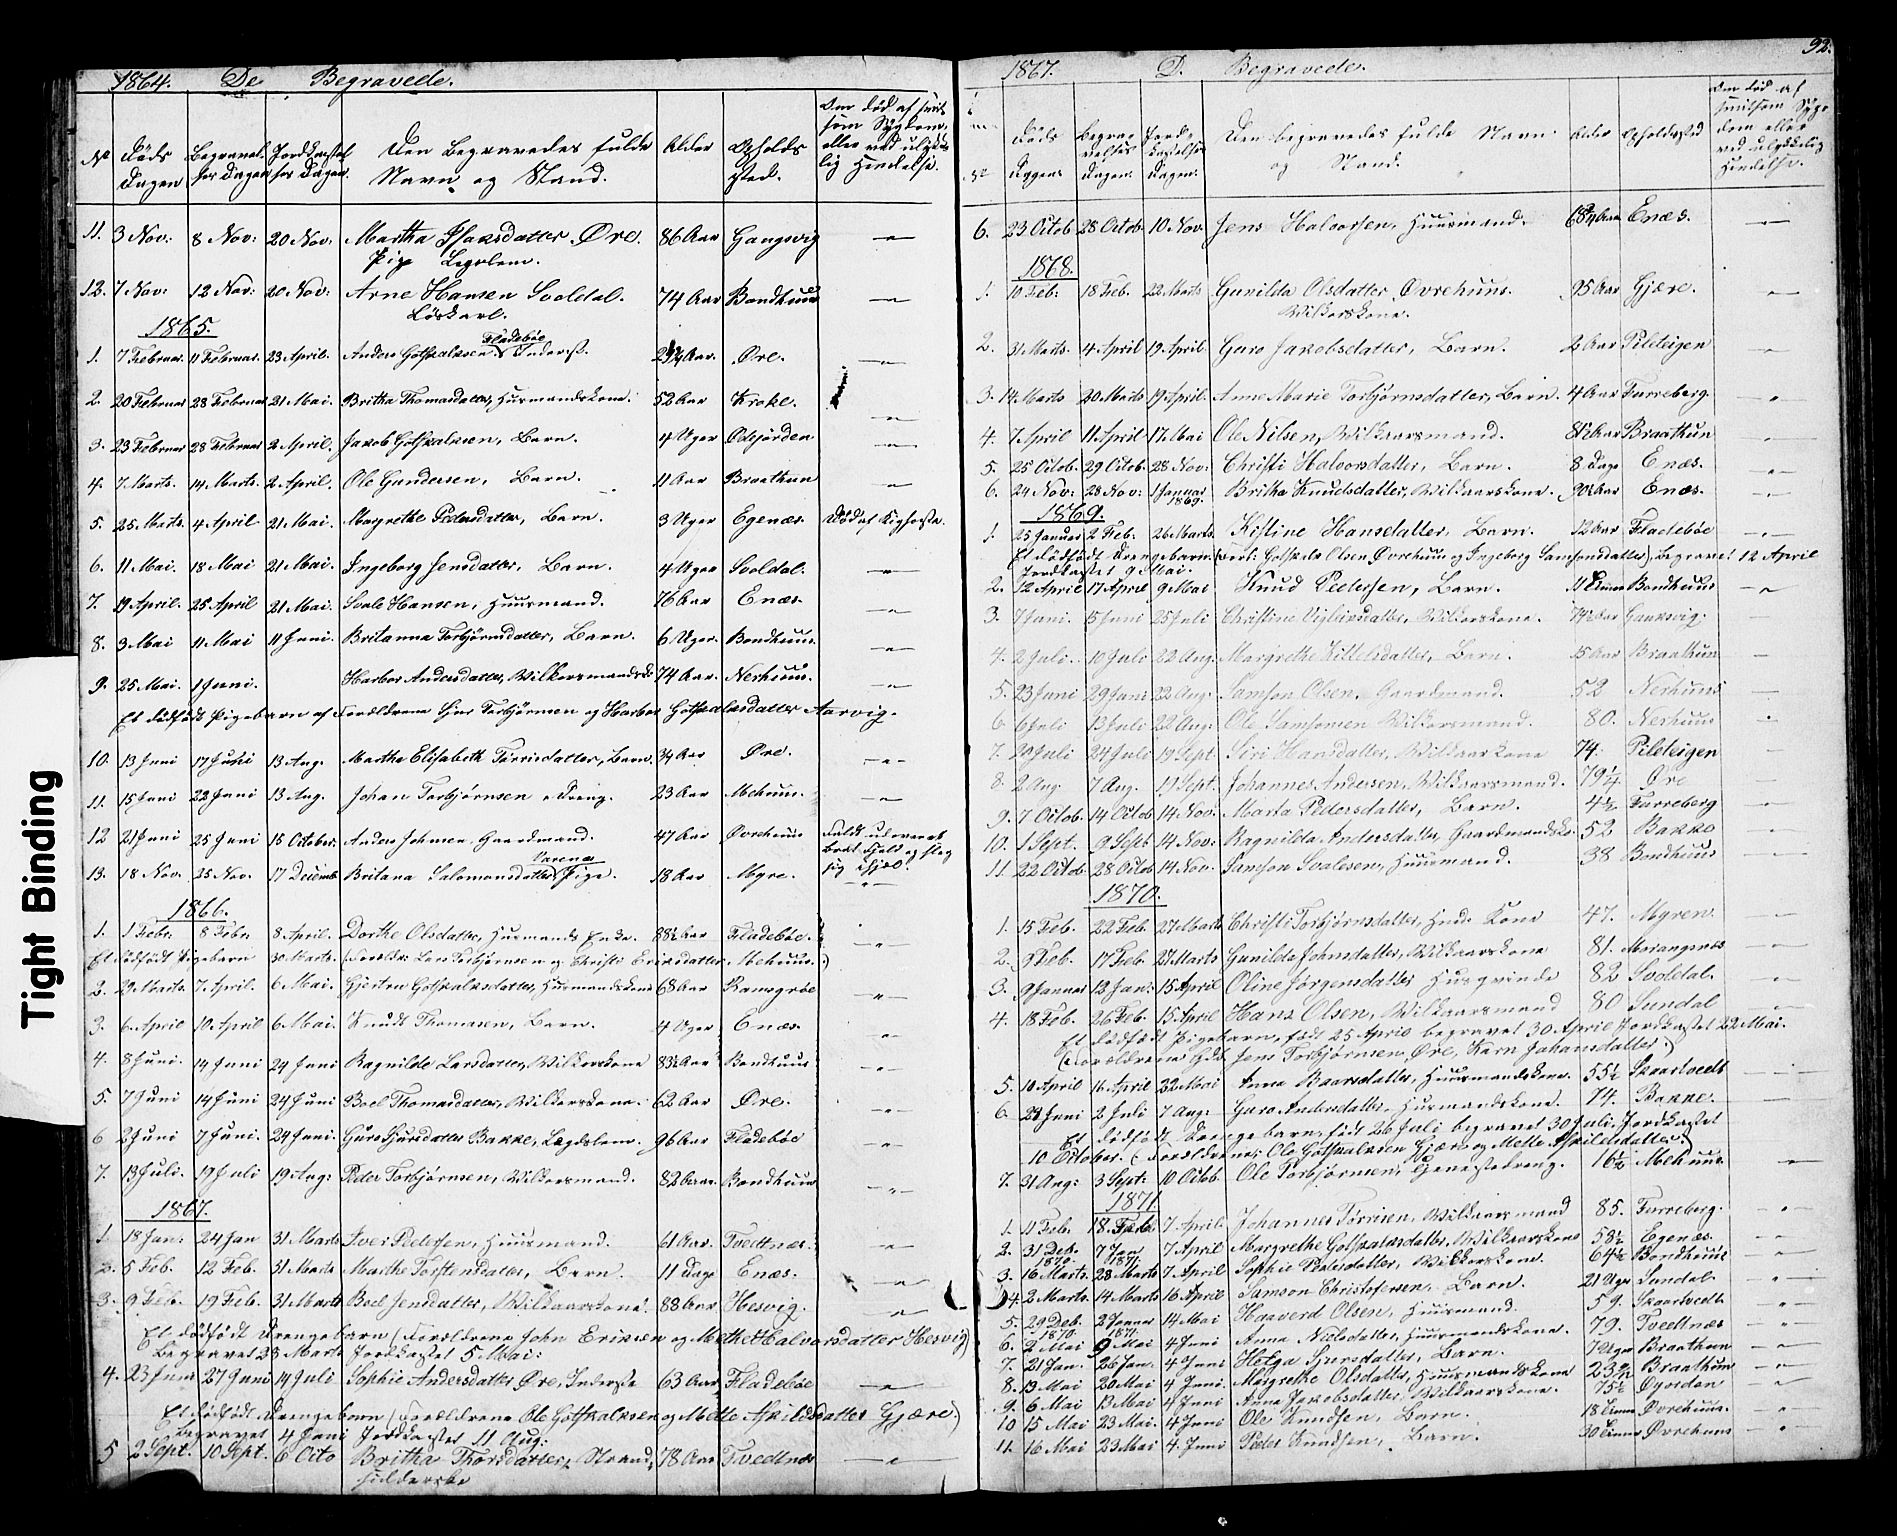 Tight Binding
1864. De Begravede.
No Døds Dagen Begravelses Dagen Jordkastelses Dagen. Den Begravedes fulde Navn og Stand. Alder Opholds sted. Om død af smitsom Sygdom, eller ved ulykkelig Hendelse.
11. 3 Nov: 8 Nov: 20 Nov: Martha Isaksdatter Øre. 86 Aar Gangsvig
Pige Legdlem.
12. 7 Nov: 12 Nov: 20 Nov: Arne Hansen Svoldal. 74 Aar Bondhuus
Løskarl.
1865.
Fladebøe
1. 7 Februar 11 Februar 23 April. Anders Gotskalksen Inderst. Aar. Øre.
2. 20 Februar 28 Februar 21 Mai. Britha Thomasdatter, Huusmandskone. 52 Aar Kroke.
3. 23 Februar 28 Februar 2 April. Jakob Gotskalksen, Barn. 4 Uger Ødejorden
4. 7 Marts. 14 Marts. 2 April. Ole Gundersen, Barn. 11 Aar Braathun
5. 25 Marts 4 April 21 Mai. Margrethe Pedersdatter, Barn. 3 Uger Egenæs. Død af Kighoste.
6. 11 Mai. 18 Mai 21 Mai. Ingeborg Jensdatter, Barn. 4 Uger Svoldal.
7. 19 April. 25 April 21 Mai. Svale Hansen, Huusmand. 76 Aar Enæs.
8. 3 Mai 11 Mai 11 Juni. Britanna Torbjørnsdatter, Barn. 6 Uger. Bondhuus.
9. 25 Mai. 1 Juni. Harbor Andersdatter, Wilkorsmandsk. 74 Aar. Nerhuus.
Et dødfødt Pigebarn af Forældrene Sjur Torbjørnsen og Harbor Gotskalksdatter Aarvig.
10. 13 Juni 17 Juni 13 Aug. Martha Elisabeth Tørrisdatter, Barn. Aar Øre.
11. 15 Juni 22 Juni 13 Aug. Johan Torbjørnsen Dreng. 23 Aar Mehuus.
12 21 Juni 25 Juni 15 October. Anders Johnsen Gaardmand. 47 Aar Øvrehuus Faldt udover et brat Fjeld og slog sig ihjel.
Varenæ
13. 18 Nov. 25 Nov. 17 Decemb. Britana Salomonsdatter Pige. 18 Aar Myre.
1866.
1. 1 Febr. 8 Febr. 8 April. Dorthe Olsdatter, Husmands Enke. 88½ Aar Fladebøe.
Et dødfødt Pigebarn 30 Marts. (Foreldr: Lars Torbjørnsen og Christi Eriksdatter, Mehuus.)
2. 29 Marts. 7 April. 6 Mai. Gjertru Gotskalksdatter, Huusmandskone 68 Aar Ramsgrøe
3. 6 April 10 April 6 Mai. Knudt Thomasen, Barn. 4 Uger Enæs.
4. 8 Juni. 14 Juni 24 Juni Ragnilde Larsdatter, Wilkorskone 83½ Aar Bondhuus
5. 7 Juni 14 Juni 24 Juni Boel Thomasdatter, Wilkorskone. 62 Aar Øre.
6 2 Juni 7 Juni. 24 Juni. Guro Sjursdatter Bakke, Lægdslem. 96 Aar Fladebøe
7. 13 Juli. 19 Juli 19 Aug: Peder Torbjørnsen, Wilkorsmand. 82 Aar. Bondhuus
1867.
1. 18 Jan: 24 Jan 31 Marts Iver Pedersen, Huusmand. 61 Aar. Tvedtnæs.
2. 5 Feb. 12 Feb. 31 Marts Marthe Torstensdatter, Barn. 11 Dage Enæs.
3. 9 Feb. 19 Feb. 31 Marts Boel Jensdatter, Wilkaarskone. 88 Aar Hesvig.
Et dødfødt Drengebarn (Forældrene John Eriksen og Mette Halvorsdatter Hesvig)
Begravet 23 Marts Jordkastet 5 Mai.
4. 23 Juni 27 Juni 14 Juli Sophie Andersdatter Øre, Inderste 63 Aar Fladebøe
Et dødfødt Drengebarn (Forældrene Ole Gotskalksen og Mette Askildsdatter Gjære.)
Begravet 4 Juni Jordkastet 11 Aug:
5 2 Sept. 10 Sept. 6 Octo Britha Thorsdatter, Strand- 78 Aar Tvedtnæs
sidderske
92.
1867. D. Begravede.
No Døds Dagen Begravelses Dagen. Jordkastelses Dagen. Den begravedes fulde Navn og Stand. Alder Opholdssted Om død af smitsom Sygdom eller ved ulykkelig Hendelse.
6. 23 Octob 28 Octob. 10 Nov. Jens Halvorsen, Huusmand. Aar Enæs.
1868.
1. 10 Feb: 18 Feb. 22 Marts Gunilda Olsdatter Øvrehuus. 95 Aar Gjære.
Wilkorskone.
2. 31 Marts. 4 April 19 April. Guro Jakobsdatter, Barn. 2 Aar Pileteigen
3. 14 Marts 20 Marts 19 April. Anne Marie Torbjørnsdatter, Barn. 4 Aar Furreberg.
4. 7 April 11 April 17 Mai Ole Nilsen, Wilkaarsmand. 81½ Aar Braathun
5. 25 Octob. 29 Octob. 28 Nov: Christi Halvorsdatter, Barn. 8 Dage Enæs.
6. 24 Nov: 28 Nov: 1 Januar 1869. Britha Knudsdatter, Wilkaarskone. 90½ Aar Enæs.
1869.
1. 25 Januar 2 Feb. 26 Marts. Kistine Hansdatter, Barn. 12 Aar Fladebøe
Et dødfødt Drengebarn. (Forl: Gotskalk Olsen Øvrehuus og Ingeborg Samsonsdatter) Begravet 12 April
Jordkastet 9 Mai.
2. 12 April 17 April 9 Mai Knud Pedersen, Barn. Bondhuus
3. 7 Juni. 15 Juni 25 Juli Christine Vigleiksdatter, Wilkorskone. 79½ Aar Gauksvig.
4. 2 Juli. 10 Juli 22 Aug. Margrethe Kittelsdatter, Barn. 15 Aar Braathun
5. 23 Juni 29 Juni 22 Aug: Samson Olsen, Gaardmand. 52 Nerhuus
6. 6 Juli 13 Juli 22 Aug: Ole Samsonsen Wilkorsmand. 80. Nerhuus
7. 20 Juli 24 Juli 19 Sept. Siri Hansdatter, Wilkaarskone 74. Pileteigen
8. 2 Aug. 7 Aug. 19 Sept. Johannes Andersen, Wilkaarsmand. 79¼ Øre
9. 7 Octob. 14 Octob 14 Nov. Marta Pedersdatter, Barn. 4½ Furreberg
10. 1 Sept. 9 Sept 14 Nov: Ragnilda Andersdatter, Gaardmandsko. 52 Bakke
11. 22 Octob. 28 Octob 14 Nov. Samson Svalesen, Huusmand. 38 Bondhuus
1870.
1. 15 Feb. 22 Feb. 27 Marts Christi Torbjørnsdatter, Husm. Kone 47. Myren.
2. Feb. 17 Feb. 27 Marts Gunilda Johnsdatter, Wilkaarskone 81. Morangsnæs
3. 9 Januar 12 Jan: 15 April Oline Jørgensdatter Husqvinde 82 Svoldal.
4. 18 Feb. 26 Feb. 15 April Hans Olsen, Wilkaarsmand 80 Sundal
Et dødfødt Pigebarn, født 25 April begravet 30 April Jordkastet 22 Mai.
(Forældrene Hdt. Jens Torbjørnsen Øre, Karn Johansdatter.)
5. 10 April 16 April 22 Mai Anna Baarsdatter, Huusmandskone. 55½ Skaartvedt
6. 28 Juni 2 Juli 7 Aug: Guro Andersdatter Huusmandskone. 74. Bakke.
Et dødfødt Drengebarn, født 26 Juli begravet 30 Juli. Jordkastet
10 October. (Forældrene Ole Gotskalksen Gjære og Mette Askildsdatter.)
7. 31 Aug: 3 Sept: 10 Octob. Ole Torbjørnsen, Tjenestedreng. 16½ Mehuus
1871
1. 11 Feb. 18. Feb. 7 April. Johannes Tørrisen, Wilkaarsmand 85. Furreberg.
2. 31 Deb. 1870. 7 Jan 1871. 7 April Margrethe Gotskalksdatter, Wilkaarskone 58½ Egenæs.
3. 16 Marts. 28 Marts 7 April Sophie Pedersdatter, Wilkorskone. 64½ Bondhuus
4. 2 Marts. 14 Marts 16 April Samson Christofersen, Barn. 21 Uger Sundal.
5. 29 Deb. 1870. 2 Januar 1871. 14 Mai Haaverd Olsen, Huusmand. 59. Skaartvedt
6. 2 Mai 9 Mai 4 Juni Anna Nielsdatter, Huusmandskone. 79. Tvedtnæs
7. 21 Jan. 26 Jan. 4 Juni Helga Sjursdatter, Barn. 7 Uger Braathun
8. 13 Mai 20 Mai 4 Juni. Margrethe Olsdatter, Huusmandskone Braathun
9. 6 Mai 13 Mai 4 Juni Anna Jakobsdatter, Wilkaarskone. 75½ Øgordan
10 15 Mai 23 Mai. 4 Juni Ole Knudsen, Barn. Øvrehuus.
11. 16 Mai 23 Mai 4. Juni Peder Knudsen, Barn. Øvrehuus